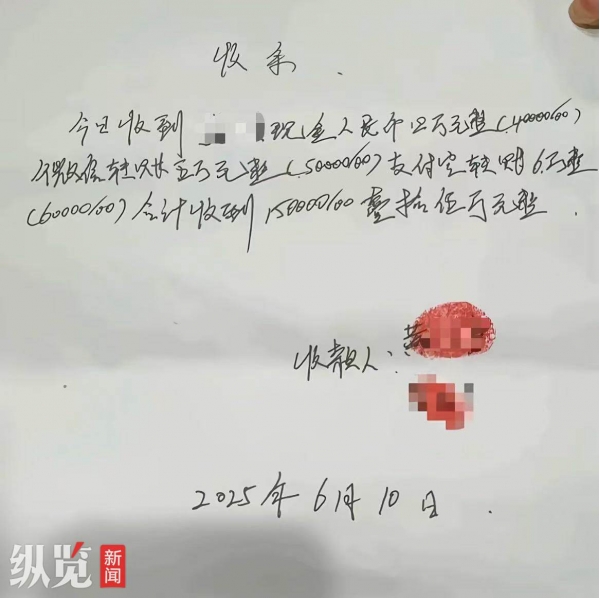 收条.
今日收到 现金人民币四万元整(40000.00)
微信转账五万元整(50000.00)支付宝转账6万整
(60000.00)合计收到150000.00壹拾伍万元整.
收款人:黄
2025年6月10日.
纵览新闻